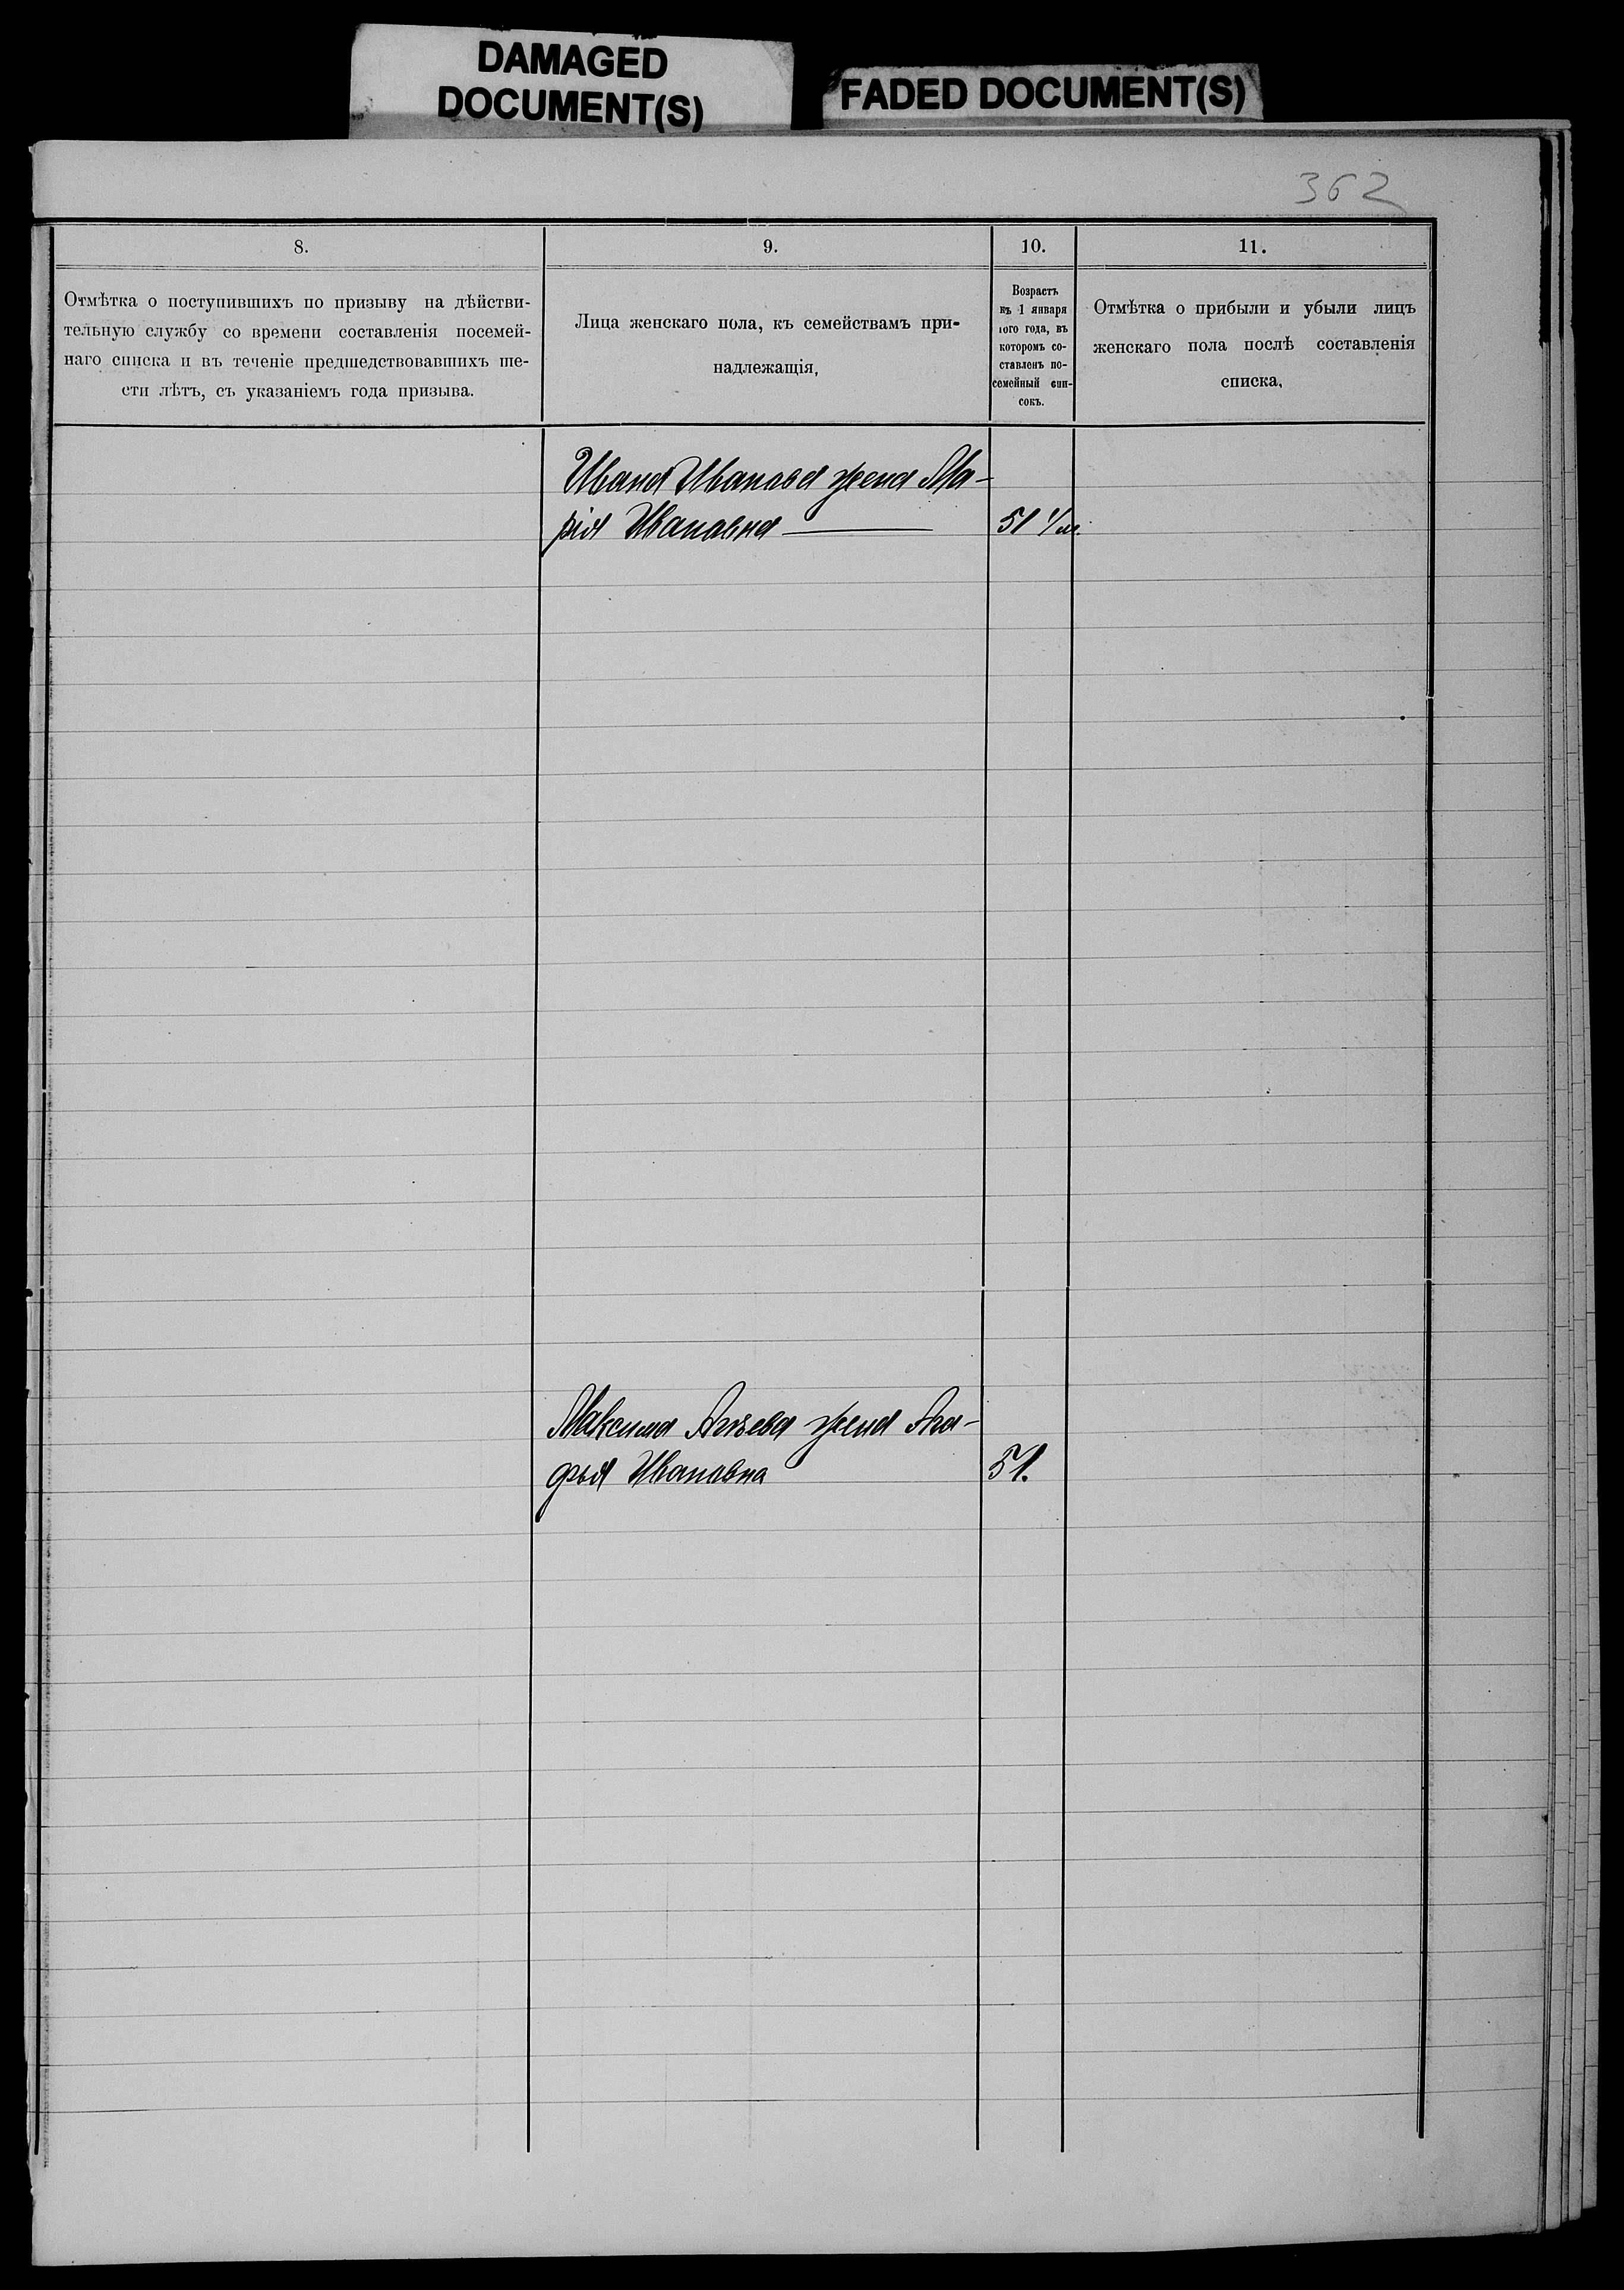 DAMAGED
DOCUMENT(S)
FADED DOCUMENT(S)
362
8.
Отмѣтка о поступившихъ по призыву на дѣйстви-
тельную службу со времени составленія посемей-
наго списка и въ теченіе предшедствовавшихъ ше-
сти лѣтъ, съ указаніемъ года призыва.
9.
Лица женскаго пола, къ семействамъ при-
надлежащія,
10.
Возрастъ
къ 1 января
того года, въ
которомъ со-
ставленъ по-
семейный спи-
сокъ.
11.
Отмѣтка о прибыли и убыли лицъ
женскаго пола послѣ составленія
списка,
Ивана Иванова жена Ма-
рія Ивановна 51 1/м.
Максима жена Ага-
фья Ивановна 51.